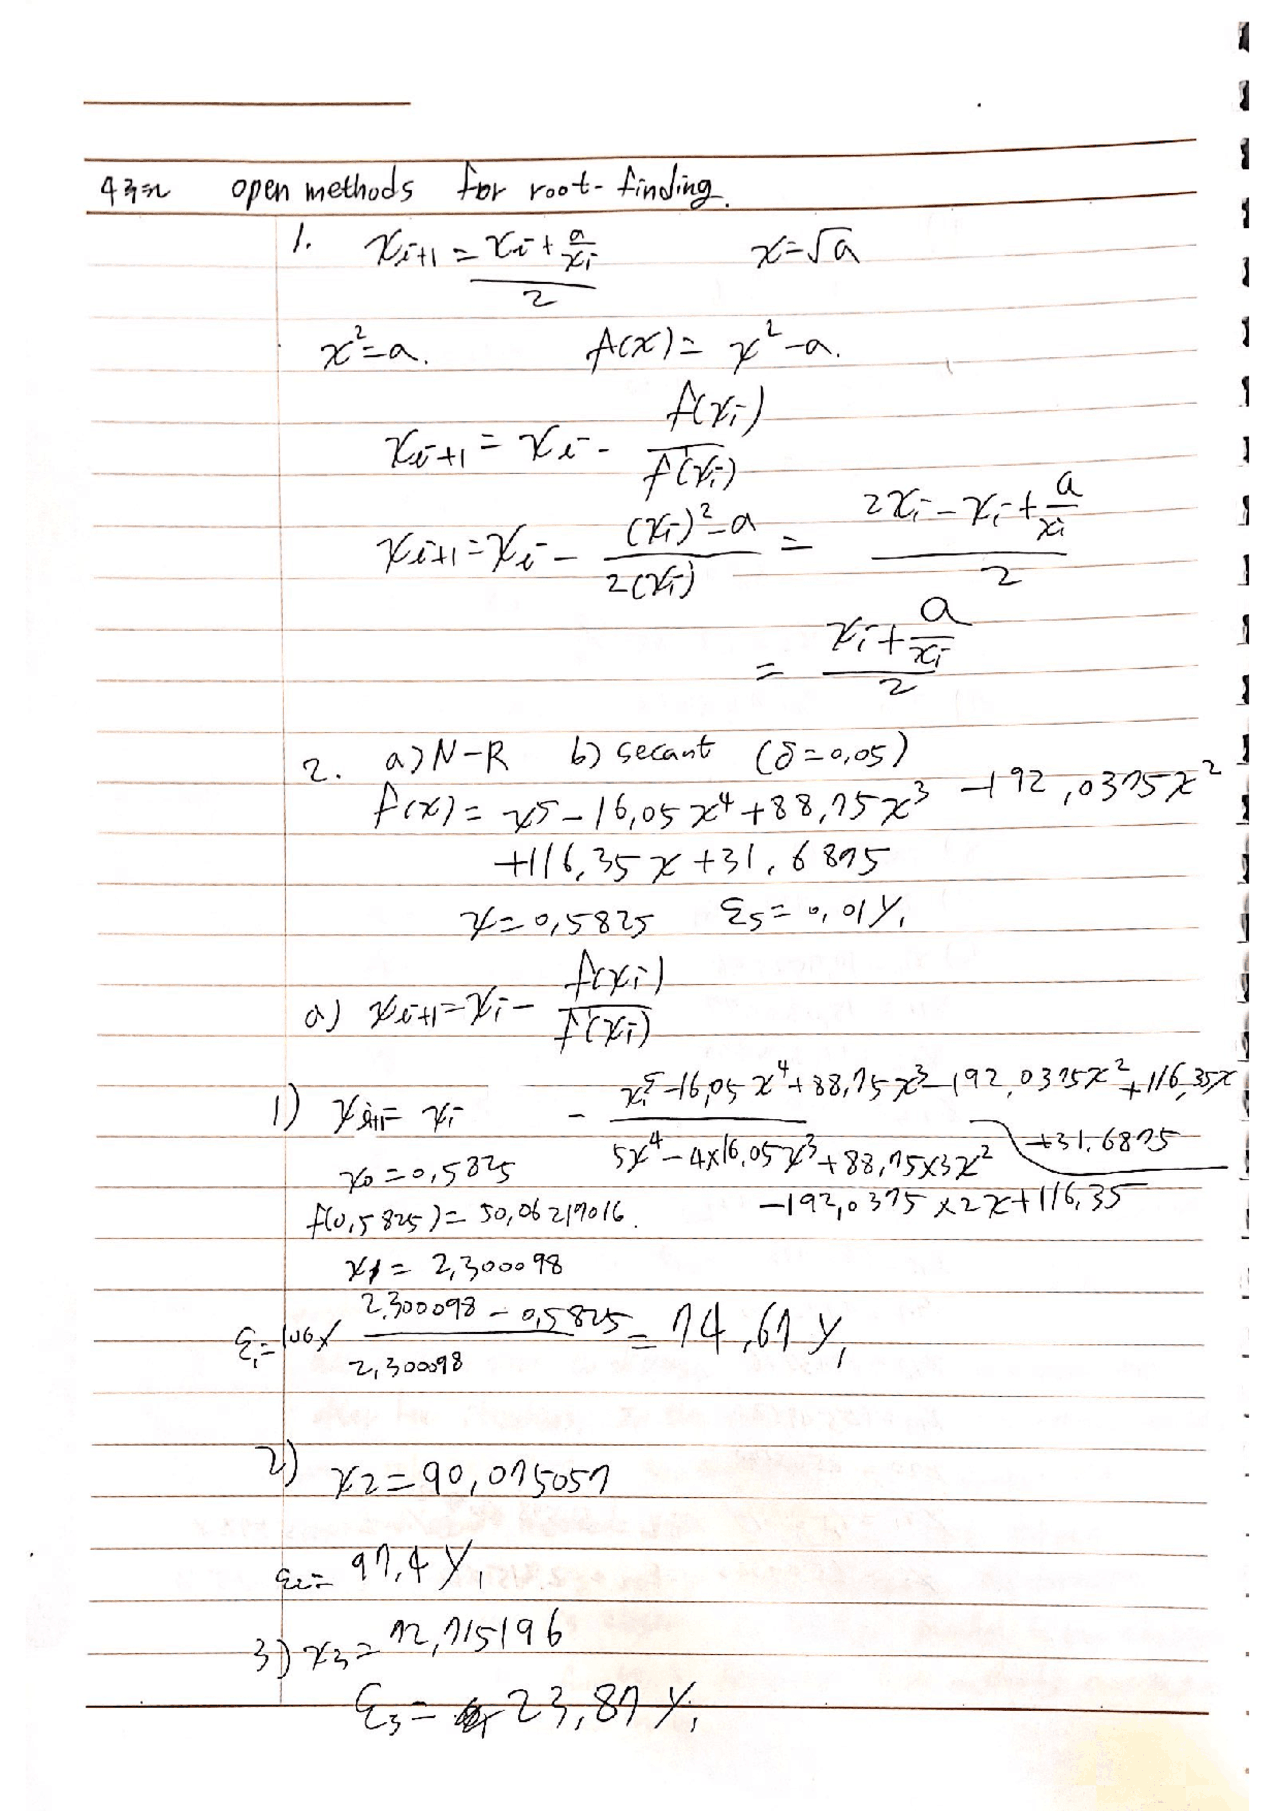 open methods for root-finding.
1. x_{i+1} = \frac{x_i + \frac{a}{x_i}}{2} x = √a
x² = a. f(x) = x² - a.
x_{i+1} = x_i - \frac{f(x_i)}{f'(x_i)}
x_{i+1} = x_i - \frac{(x_i)² - a}{2(x_i)} = \frac{2x_i - x_i + \frac{a}{x_i}}{2}
= \frac{x_i + \frac{a}{x_i}}{2}
2. a) N-R b) secant (δ=0,05)
f(x) = x⁵ - 16,05x⁴ + 88,75x³ - 192,0375x²
+116,35x + 31,6875
x = 0,5825 ε_s = 0,01%
a) x_{i+1} = x_i - \frac{f(x_i)}{f'(x_i)}
1) x_{i+1} = x_i - \frac{x_i⁵ - 16,05x⁴ + 88,75x³ - 192,0375x² + 116,35x + 31,6875}{5x⁴ - 4×16,05x³ + 88,75×3x² - 192,0375×2x + 116,35}
x₀ = 0,5825
f(0,5825) = 50,06217016.
x₁ = 2,300098
ε₁ = 100× \frac{2,300098 - 0,5825}{2,300098} = 74,67%
2) x₂ = 90,075057
ε₂ = 97,4%
3) x₃ = 72,715196
ε₃ = 23,87%